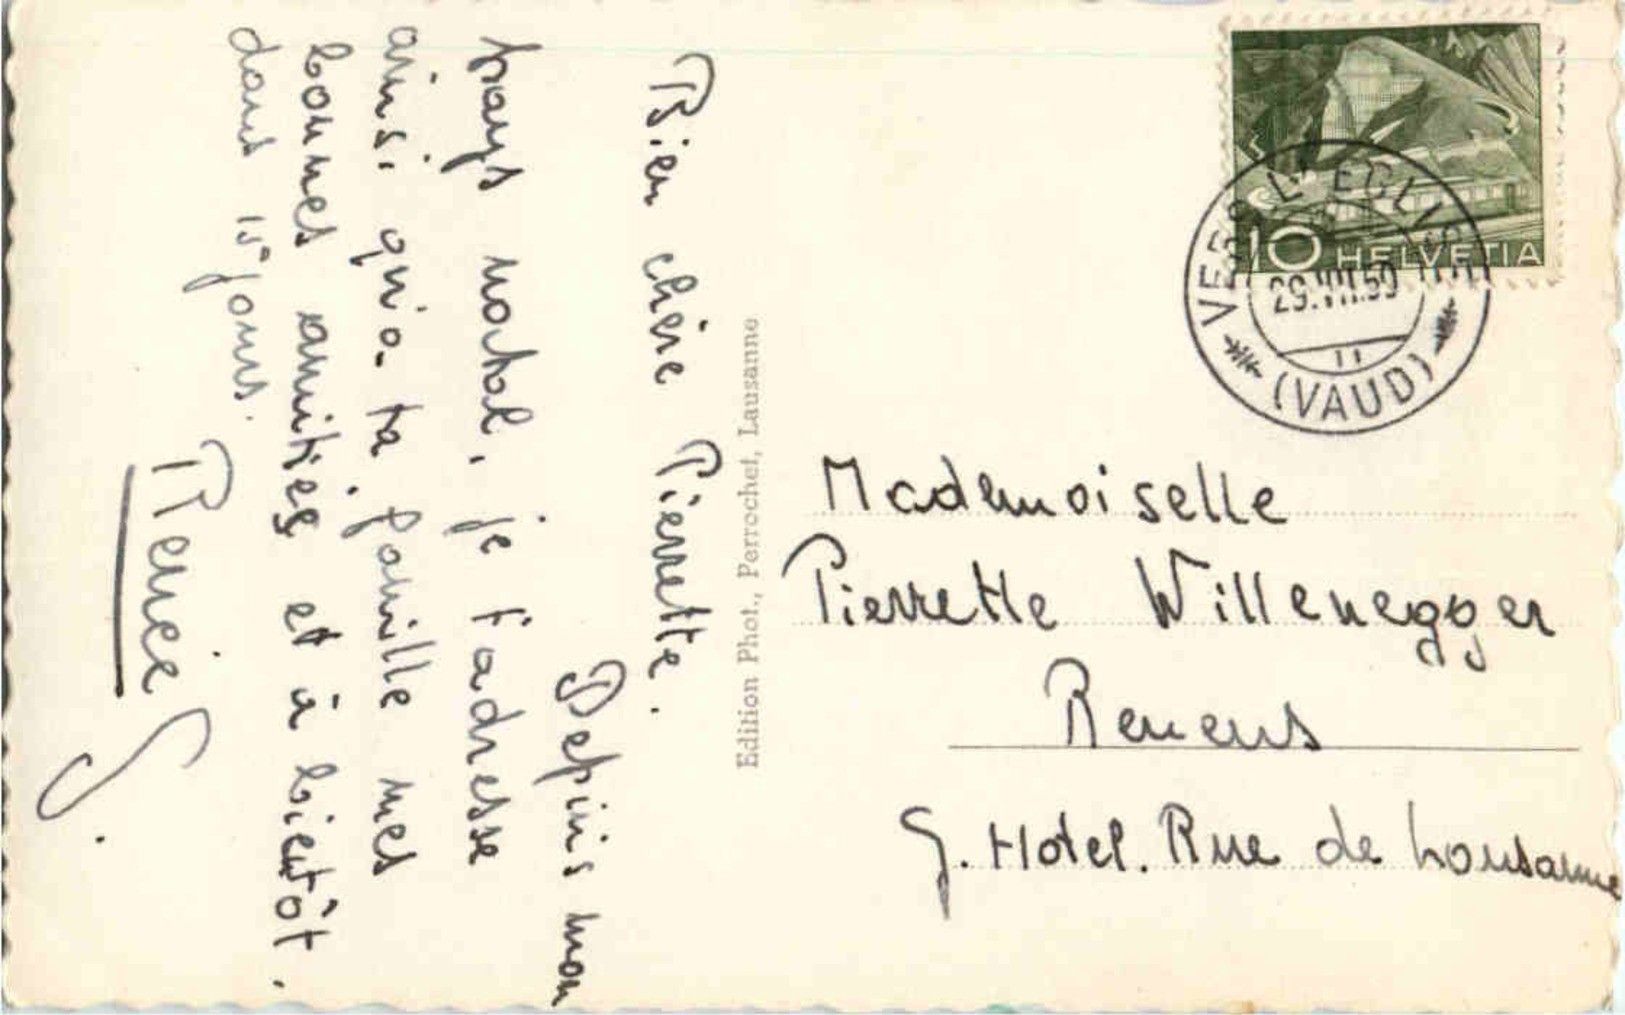 Bien chère Pierrette.
Depuis mon
pays natal, je t'adresse
ainsi qu'a ta famille mes
bonnes amitiés et à bientôt.
dans 15 jours.
Renée S.
Edition Phot., Perrochet, Lausanne
10 HELVETIA
VERS L'EGLISE
29.VII.50
(VAUD)
Mademoiselle
Pierrette Willenegger
Renens
G. Hotel. Rue de Lausanne